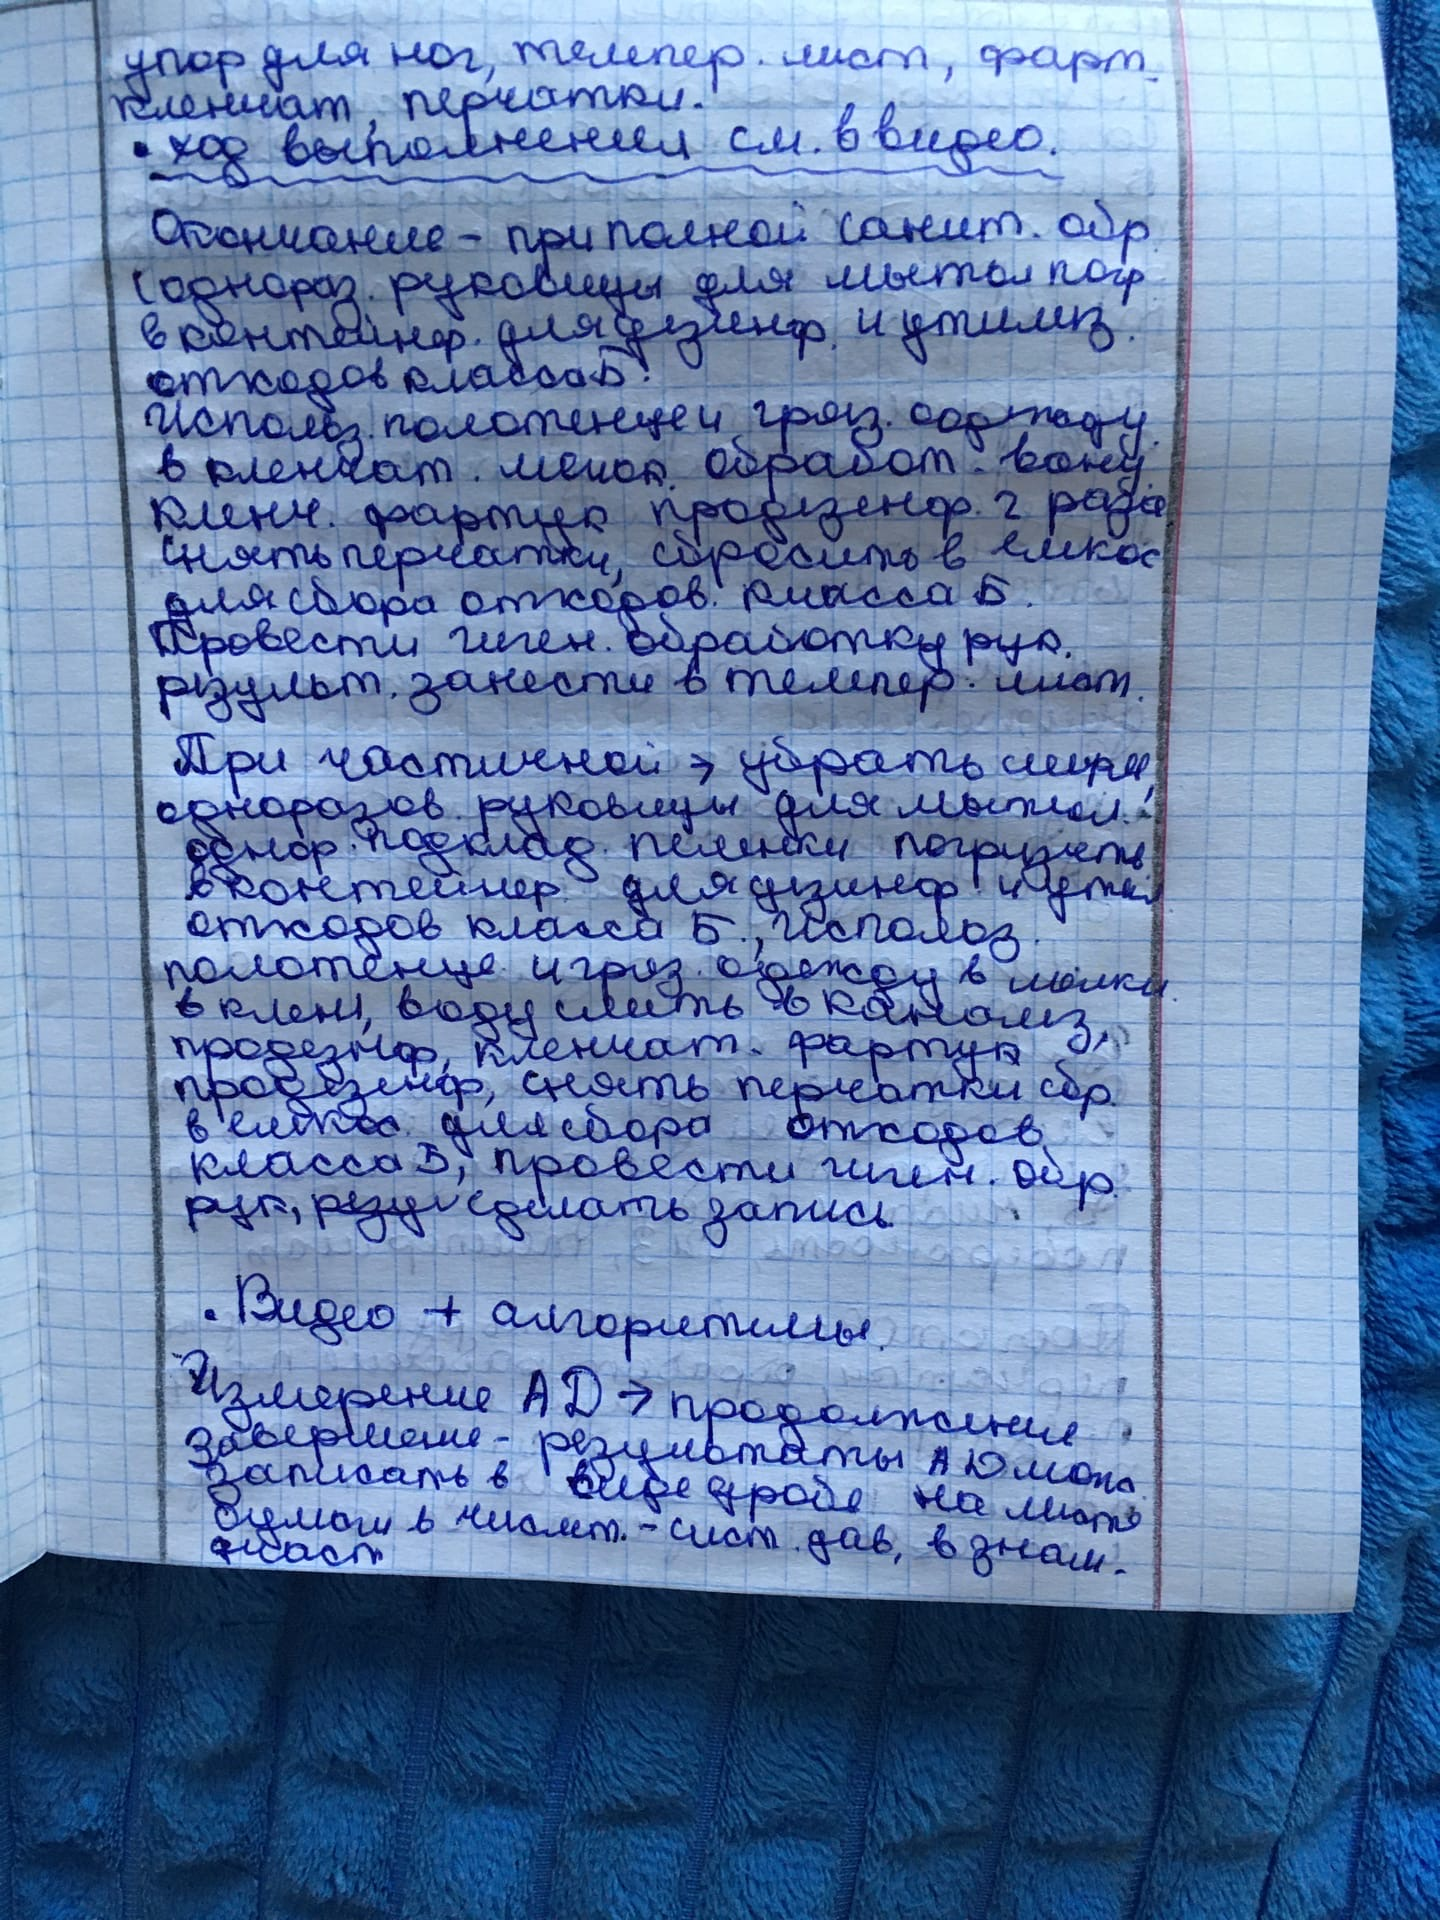 упор для ног, темпер. лист, фарт.
клеенчат, перчатки.
• ход выполнения см. в видео.
Окончание - при полной санит. обр.
(однораз. рукавицы для мытья погр
в контейнер. для дезинф. и утилиз.
отходов класса Б.
Использ. полотенце и гряз. одежду
в клеенчат. мешок. обработ. ванну
клеен. фартук продезенф. 2 раза
снять перчатки, сбросить в емкос
для сбора отходов. класса Б.
Провести гиген. обработку рук.
результ. занести в темпер. лист.
При частичной → убрать ширм,
одноразов. рукавицы для мытья.
однор. подклад. пеленки погрузить
в контейнер для дезинф. и утил
отходов класса Б., Использ.
полотенце и гряз. одежду в мешки
в клен, воду слить в канализ,
продезнф, кленчат. фартук
продезенф, снять перчатки сбр.
в емкос для сбора отходов
класса Б, провести гиген. обр.
рук, сделать запись
. Видео + алгоритмы.
Измерение АД → продолжение
Завершение - результаты АД можн
записать в виде дроби на листе
бумаги в числит. - сист. дав, в знам.
диаст